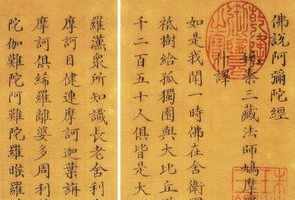 佛說阿彌陀經
姚秦三藏法師鳩摩
什譯
如是我聞一時佛在舍衛
祇樹給孤獨園與大比丘
千二百五十人俱皆是大
羅漢衆所知識長老舍利
摩訶目犍連摩訶迦葉
摩訶俱絺羅離婆多周利
陀伽難陀阿難陀羅睺羅